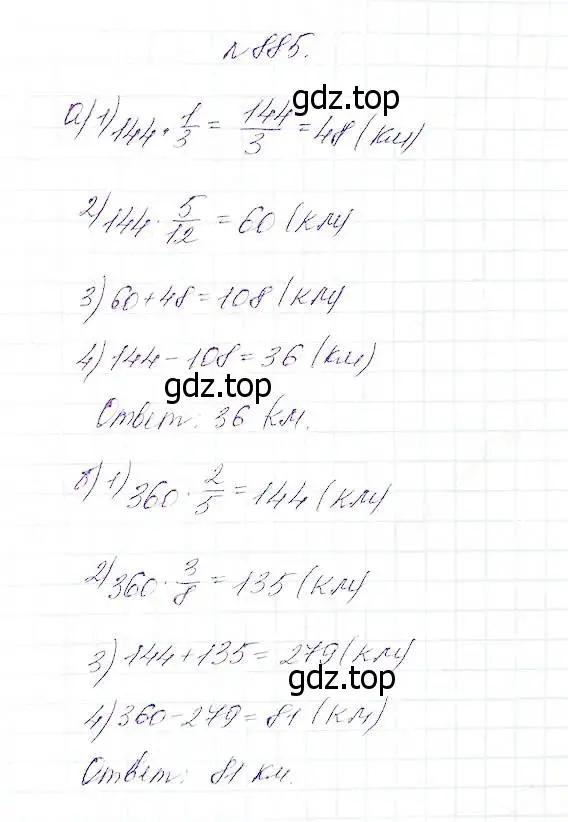 №885.
gdz.top
а) 1) 144 · 1/3 = 144/3 = 48 (км)
2) 144 · 5/12 = 60 (км)
3) 60 + 48 = 108 (км)
4) 144 - 108 = 36 (км)
gdz.top
Ответ: 36 км.
б) 1) 360 · 2/5 = 144 (км)
2) 360 · 3/8 = 135 (км)
3) 144 + 135 = 279 (км)
gdz.top
4) 360 - 279 = 81 (км)
Ответ: 81 км.